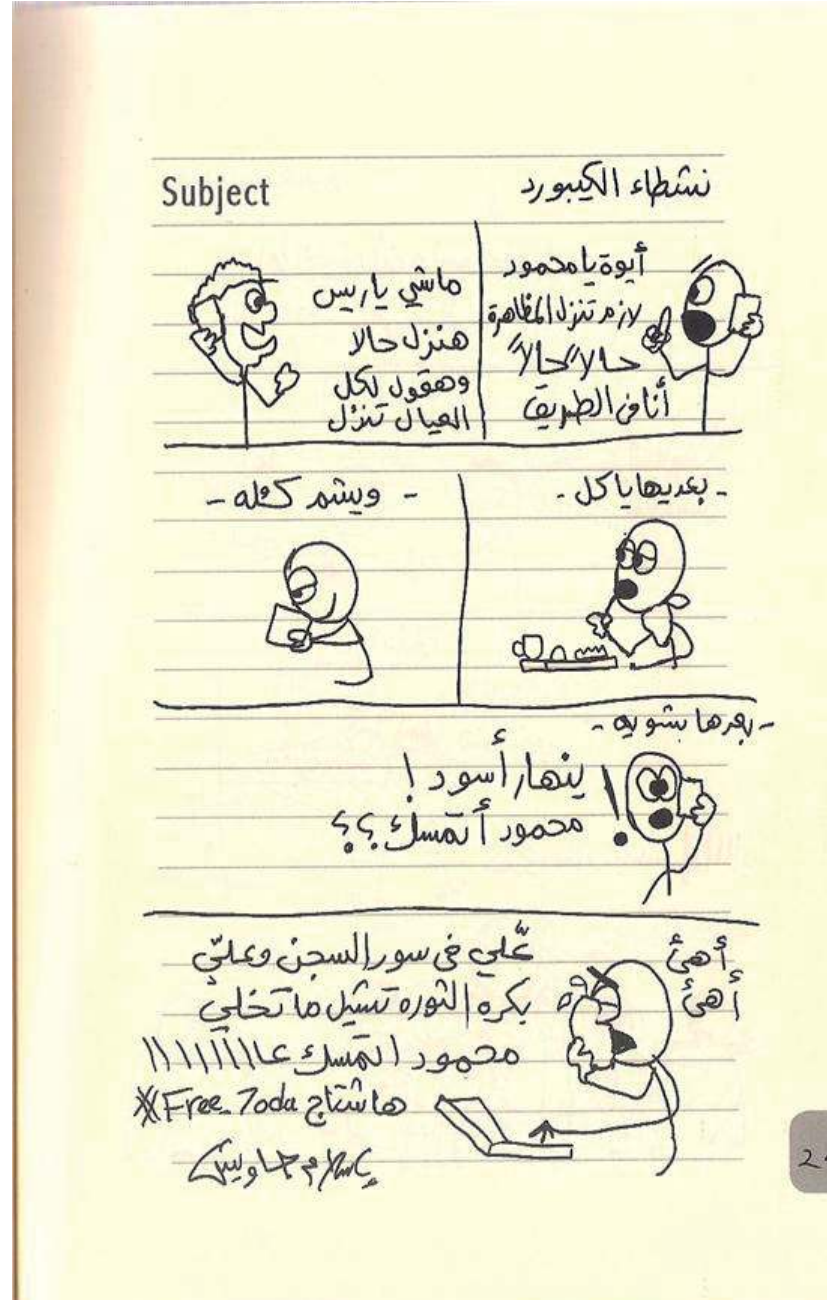 Subject
نشطاء الكيبورد
أيوة يا محمود
لازم تنزل المظاهرة
حالاً حالاً
أنا في الطريق
ماشي ياريس
هنزل حالا
وهقول لكل
العيال تنزل
- بعديها ياكل -
- ويشم كُله -
- بعدها بشويه -
ينهار أسود !
محمود أتمسك ؟؟
أهئ
أهئ
عَّلي في سور السجن وعليّ
بكره الثوره تشيل ما تخليّ
محمود اتمسك عاااااااا
هاشتاج Free_7oda #
إسلام جاويش